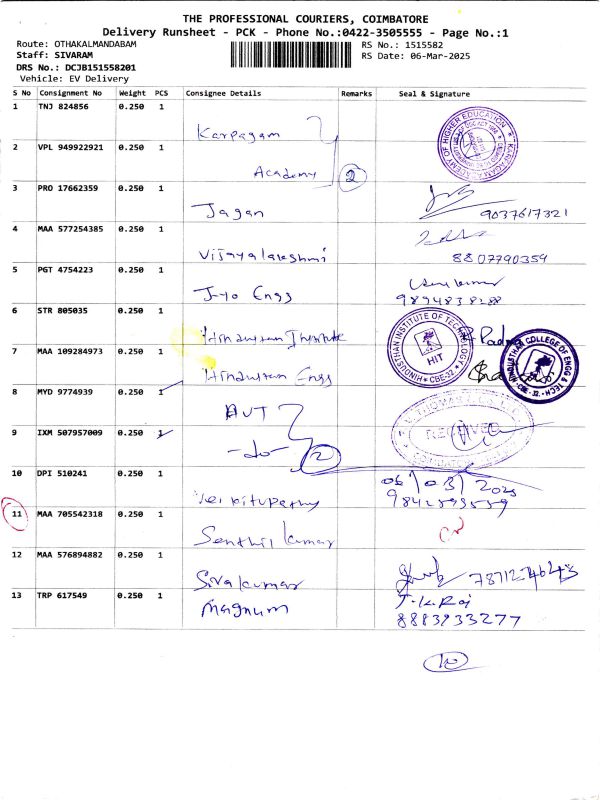 THE PROFESSIONAL COURIERS, COIMBATORE
Delivery Runsheet - PCK - Phone No.:0422-3505555 - Page No.:1
Route: OTHAKALMANDABAM
RS No.: 1515582
Staff: SIVARAM
RS Date: 06-Mar-2025
DRS No.: DCJB151558201
Vehicle: EV Delivery
S No Consignment No Weight PCS Consignee Details Remarks Seal & Signature
1 TNJ 824856 0.250 1 Karpagam
2 VPL 949922921 0.250 1 Academy 2
3 PRO 17662359 0.250 1 Jagan 9037617321
4 MAA 577254385 0.250 1 Vijayalakshmi 8807790359
5 PGT 4754223 0.250 1 Jyo Engg 9894838288
6 STR 805035 0.250 1 Hindustan Institute
HINDUSTHAN INSTITUTE OF TECHNOLOGY
HIT
CBE-32
7 MAA 109284973 0.250 1 Hindustan Engg
HINDUSTHAN COLLEGE OF ENGG & TECH
CBE-32
8 MYD 9774939 0.250 1 AVT
9 IXM 507957009 0.250 1 -do- 2
RECEIVED
10 DPI 510241 0.250 1 06/03/2025
9842593559
11 MAA 705542318 0.250 1 Senthil kumar
12 MAA 576894882 0.250 1 Sivakumar
13 TRP 617549 0.250 1 Magnum J.K.Raj
8883933277
10